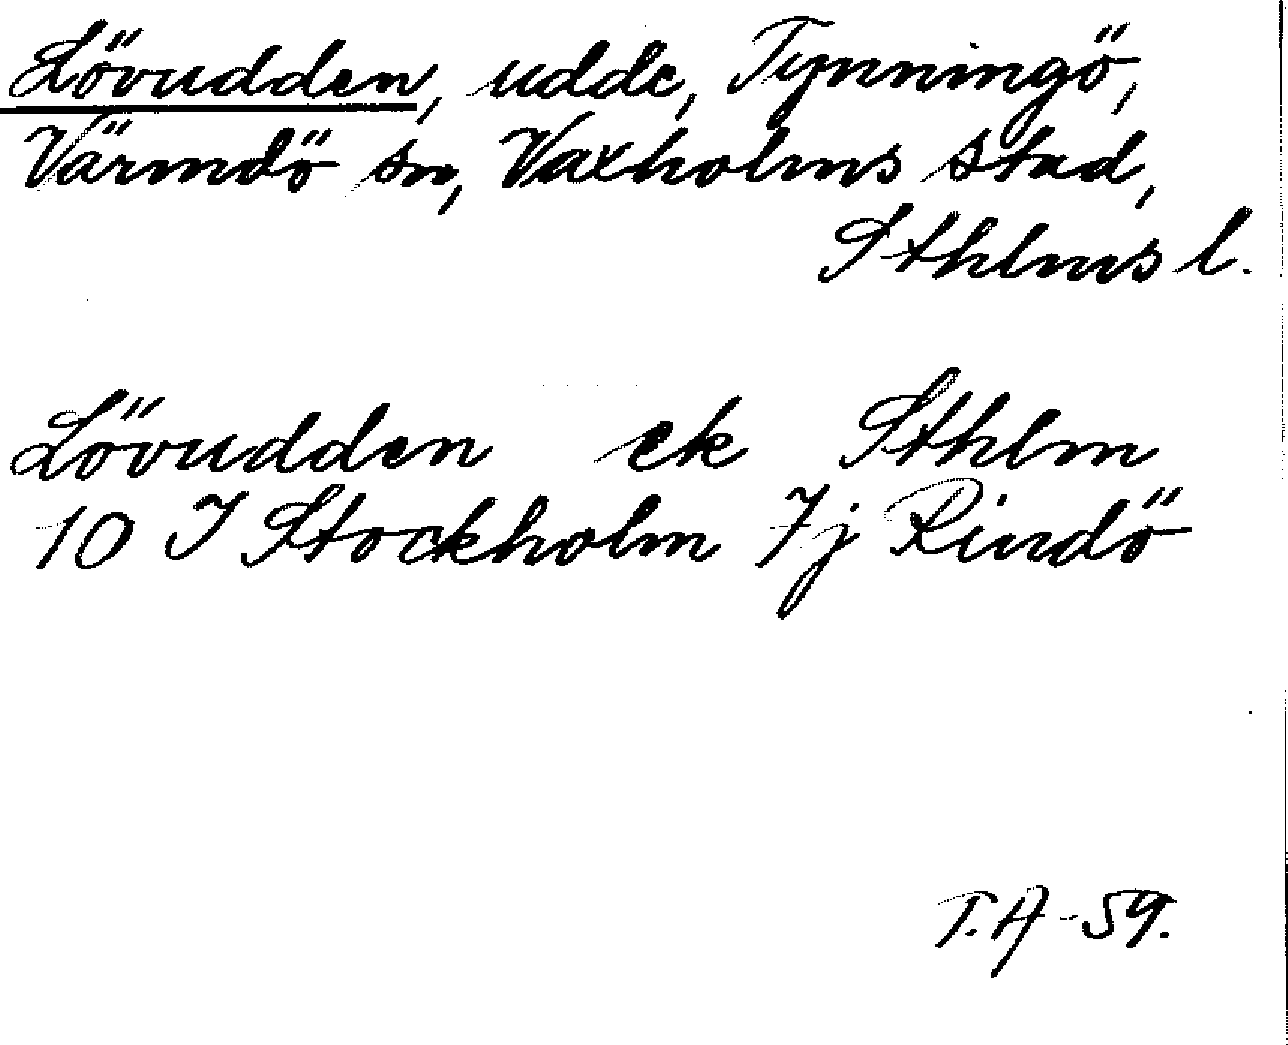 Lövudden, udde, Tynningö,
Värmdö sn, Vaxholms stad,
Sthlms l.
Lövudden ek Sthlm
10 I Stockholm 7j Rindö
T.A-59.